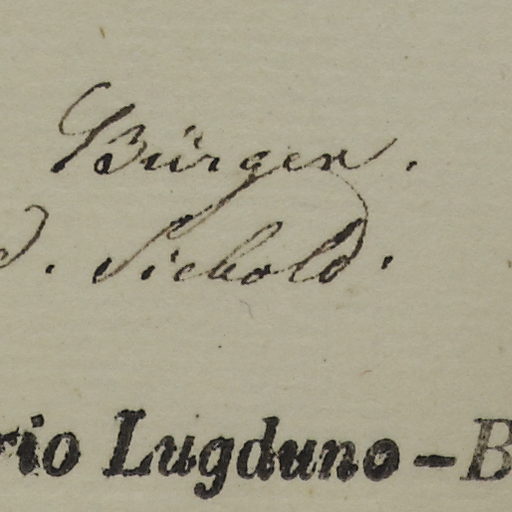 Bürger.
d. Siebold.
rio Lugduno-B